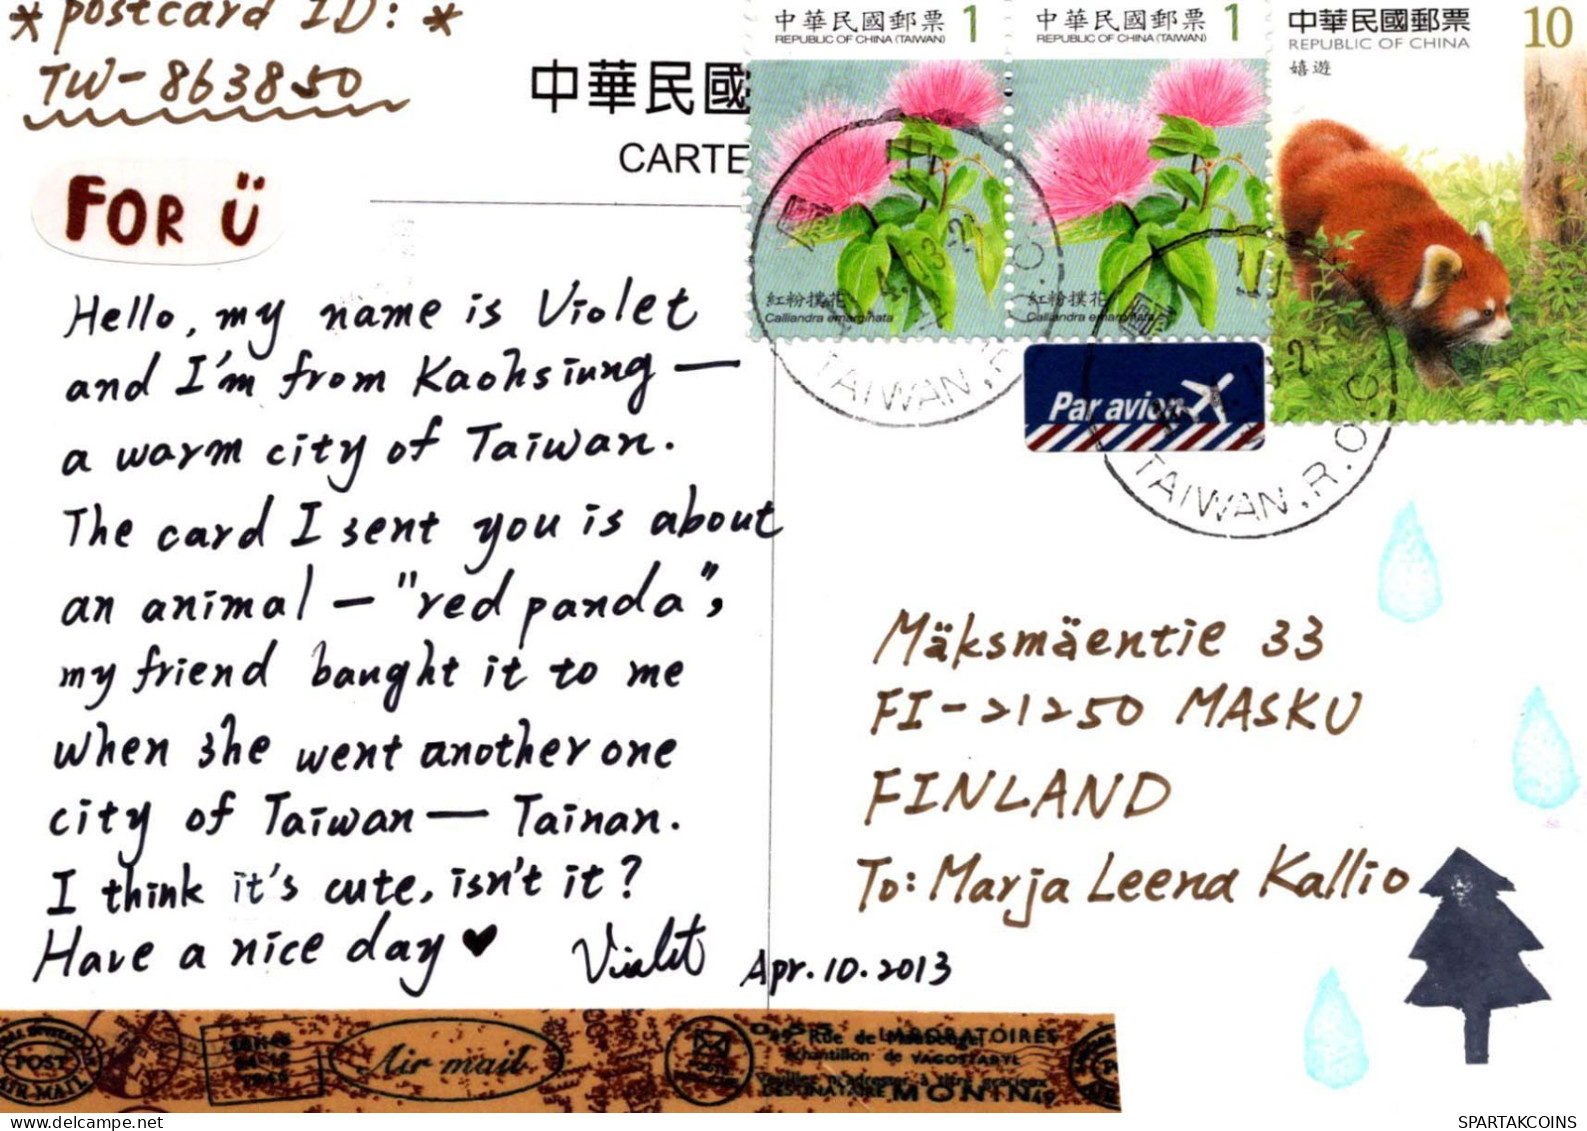 * postcard ID: *
TW-863850
FOR Ü
中華民國
CARTE
中華民國郵票 1
REPUBLIC OF CHINA (TAIWAN)
紅粉撲花
Calliandra emarginata
中華民國郵票 1
REPUBLIC OF CHINA (TAIWAN)
紅粉撲花
Calliandra emarginata
中華民國郵票 10
REPUBLIC OF CHINA
嬉遊
TAIWAN, R.O.C
Par avion
TAIWAN, R.O.C
Hello, my name is Violet
and I'm from Kaohsiung —
a warm city of Taiwan.
The card I sent you is about
an animal — "red panda",
my friend baught it to me
when she went another one
city of Taiwan — Tainan.
I think it's cute, isn't it?
Have a nice day ♥
Violet
Apr.10.2013
Mäksmäentie 33
FI-21250 MASKU
FINLAND
To: Marja Leena Kallio
POST
AIR MAIL
Air mail
Rue de
LABORATOIRES
échantillon de
MONIN
SPARTAKCOINS
www.delcampe.net